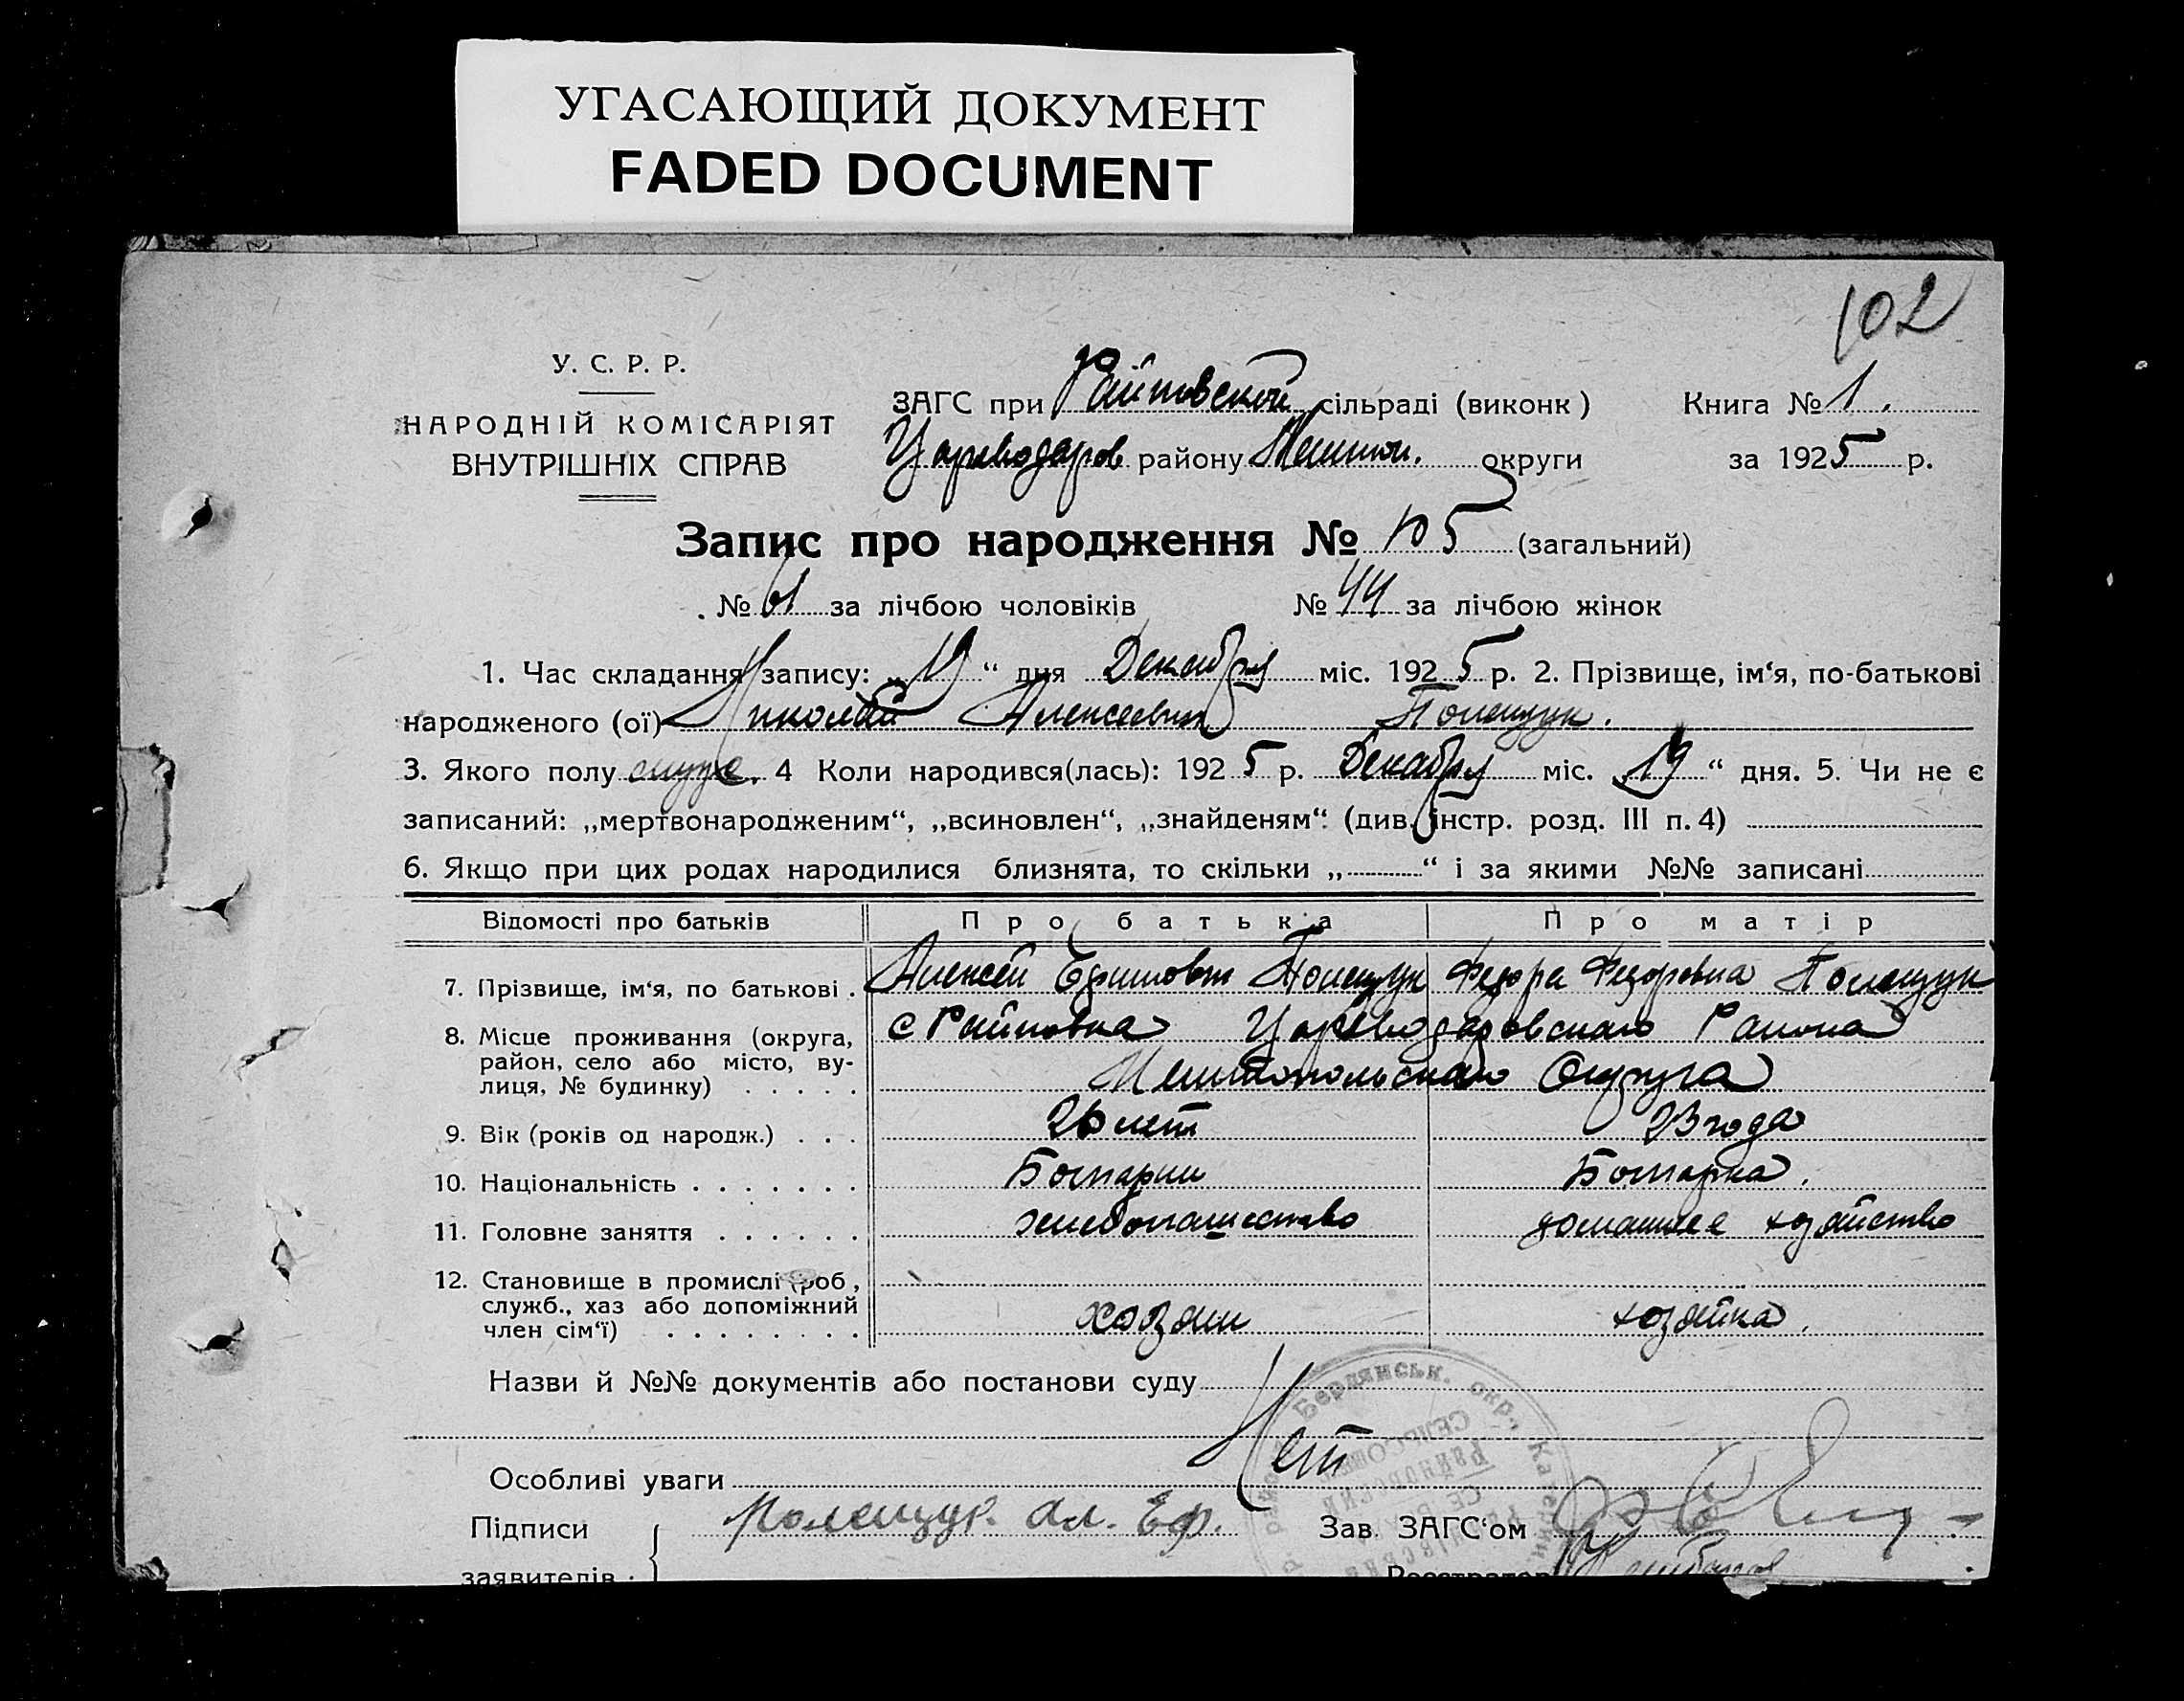 УГАСАЮЩИЙ ДОКУМЕНТ
FADED DOCUMENT
102
У. С. Р. Р.
НАРОДНІЙ КОМІСАРІЯТ
ВНУТРІШНІХ СПРАВ
ЗАГС при Райновской сільраді (виконк) Книга № 1.
Цареводаров району Мелитоп. округи за 1925 р.
Запис про народження № 105 (загальний)
№ 61 за лічбою чоловіків № 44 за лічбою жінок
1. Час складання запису: „19“ дня Декабря міс. 1925 р. 2. Прізвище, ім‘я, по-батькові
народженого (ої) Николай Алексеевич Полещук.
3. Якого полу муж. 4 Коли народився(лась): 1925 р. Декабря міс. „19“ дня. 5. Чи не є
записаний: „мертвонародженим“, „всиновлен“, „знайденям“ (див. інстр. розд. III п. 4)
6. Якщо при цих родах народилися близнята, то скільки „ “ і за якими №№ записані
Відомості про батьків Про батька Про матір
7. Прізвище, ім‘я, по батькові . Алексей Ефимович Полещук Федора Федоровна Полещук
8. Місце проживання (округа, район, село або місто, вулиця, № будинку) . . . . . с Райновка Цареводаровскаго Района
Мелитопольскаго Округа
9. Вік (років од народж.) . . . 26 лет 23 года
10. Національність . . . . . . . Болгарин Болгарка.
11. Головне заняття . . . . . . хлебопашество домашнее хозяйство
12. Становище в промислі (роб, служб., хаз або допоміжний член сім‘ї) . . . . . . . . хозяин хозяйка.
Назви й №№ документів або постанови суду
Нет
Особливі уваги
Бердянськ. окр., Катерин
Підписи Полещук. Ал. Еф. Зав. ЗАГС‘ом
заявителів: Реєстратор